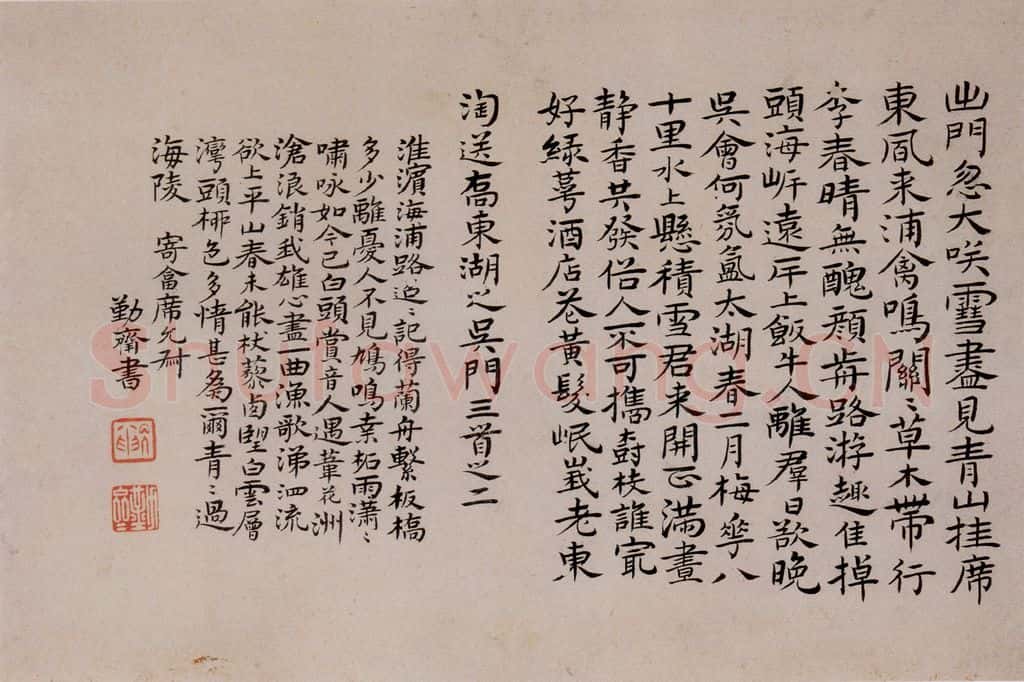 出門忽大咲雪盡見青山挂席
東風来浦禽鳴關〻草木帶行
李春晴無醜顔歬路游趣佳掉
頭海岓遠岸上飯牛人離羣日欲晚
吳會何氛氳太湖春二月梅華八
十里水上懸積雪君来開正滿晝
静香共發俗人不可攜壽枝誰寫
好綠萼酒店花黃髮岷峩老東
淘送高東湖之吳門三首之二
淮濵海浦路迢〻記得蘭舟繫板橋
多少離憂人不見鳩鳴桒柘雨瀟〻
嘯咏如今已白頭賞音人遇葦花洲
滄浪銷我雄心盡一曲漁歌涕泗流
欲上平山春未能杖藜卤朢白雲層
灣頭桺色多情甚為爾青〻過
海陵 寄畣席允尌
勤齋書
Shufawang.CN